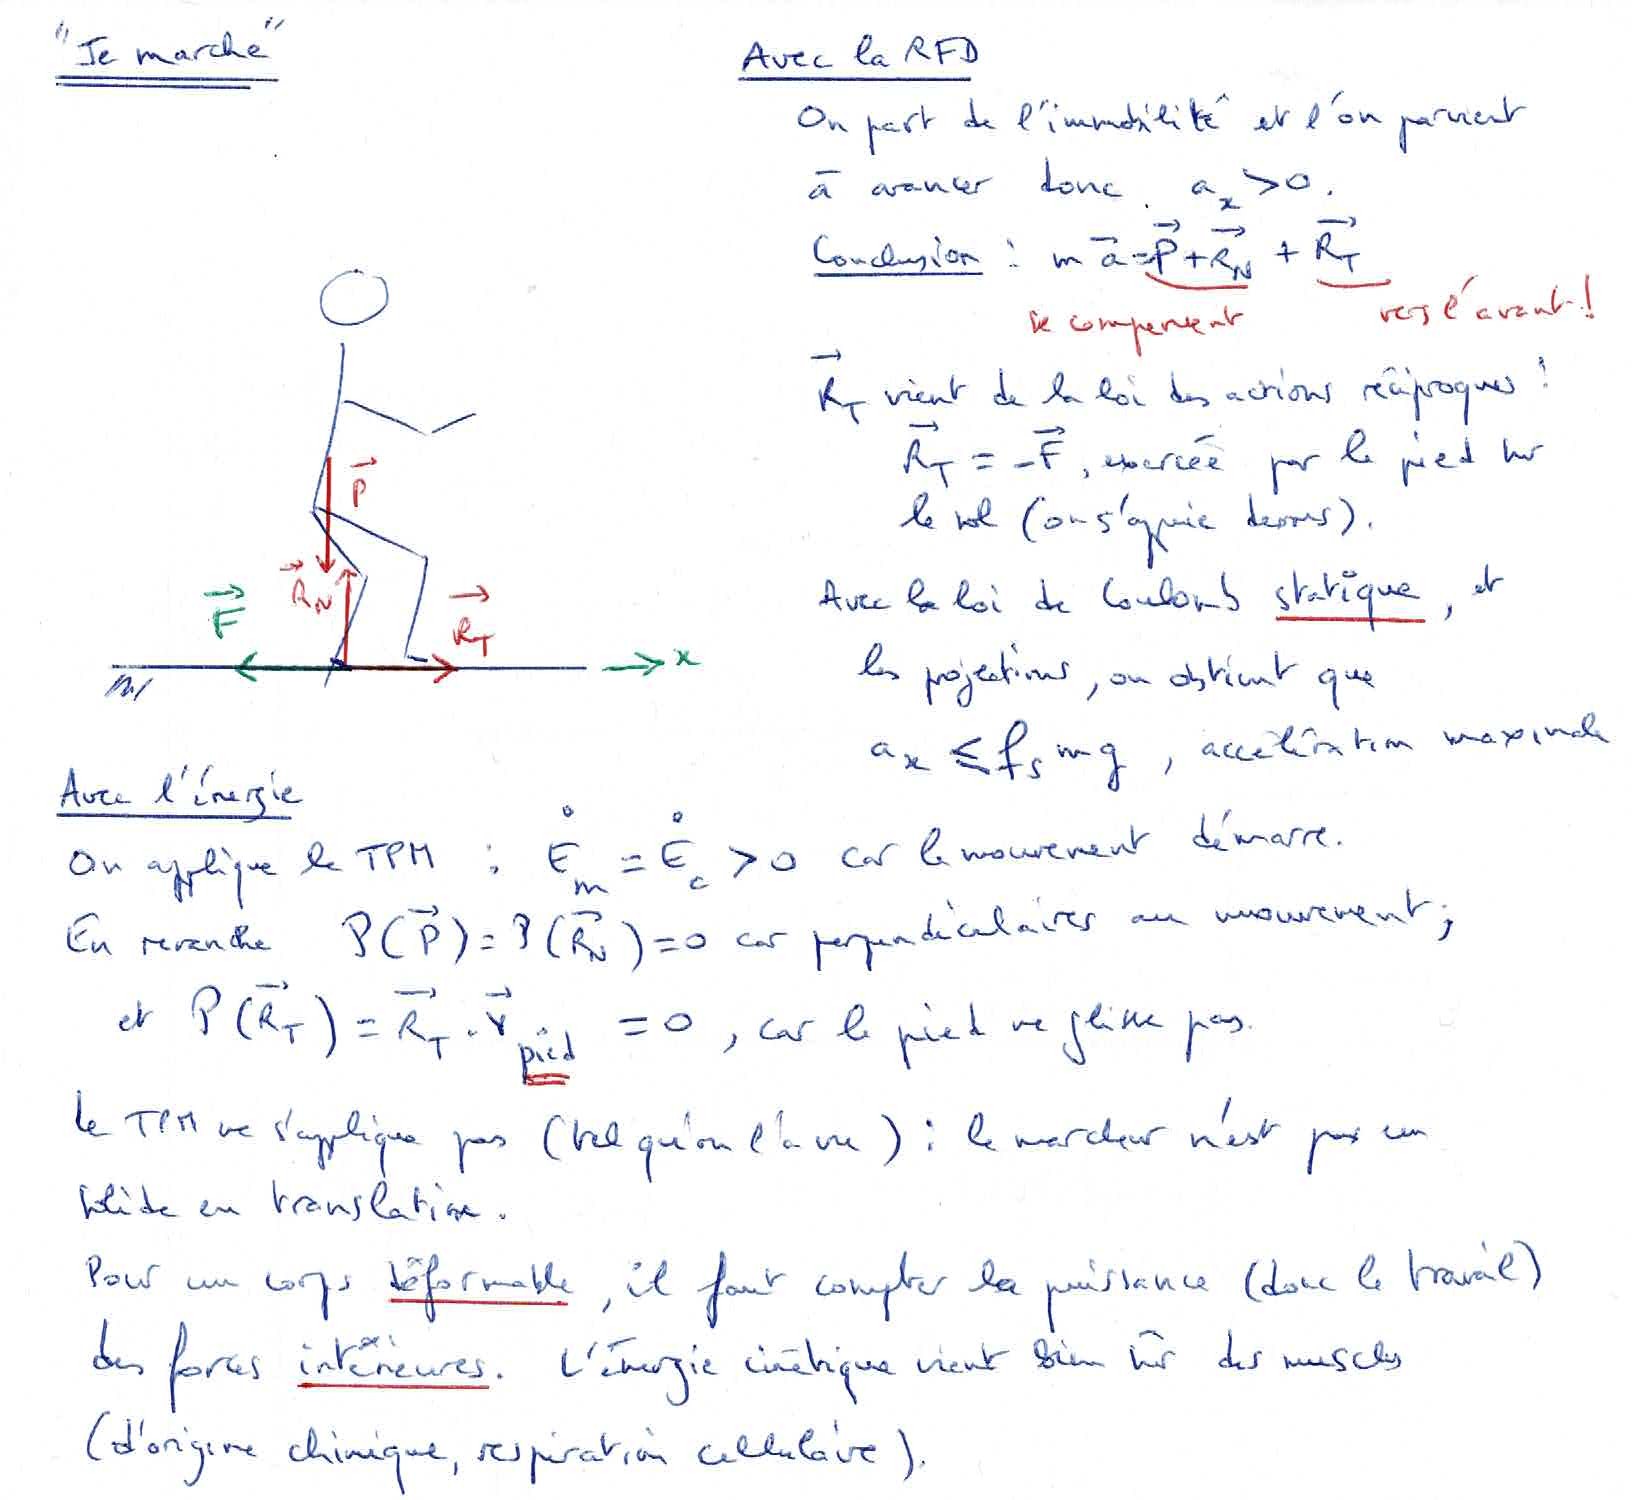 "Je marche"
Avec la RFD
On part de l'immobilité et l'on parvient
à avancer donc a_x > 0.
Conclusion : m a⃗ = P⃗ + R⃗_N + R⃗_T
se compensent
vers l'avant !
R⃗_T vient de la loi des actions réciproques :
R⃗_T = -F⃗, exercée par le pied sur
le sol (on s'appuie dessus).
Avec la loi de Coulomb statique, et
les projections, on obtient que
a_x ≤ f_s mg, accélération maximale
P⃗
R⃗_N
F⃗
R⃗_T
x
Avec l'énergie
On applique le TPM : Ė_m = Ė_c > 0 car le mouvement démarre.
En revanche P(P⃗) = P(R⃗_N) = 0 car perpendiculaires au mouvement ;
et P(R⃗_T) = R⃗_T . v⃗_pied = 0, car le pied ne glisse pas.
Le TPM ne s'applique pas (tel qu'on l'a vu) : le marcheur n'est pas un
solide en translation.
Pour un corps déformable, il faut compter la puissance (donc le travail)
des forces intérieures. L'énergie cinétique vient bien sûr des muscles
(d'origine chimique, respiration cellulaire).